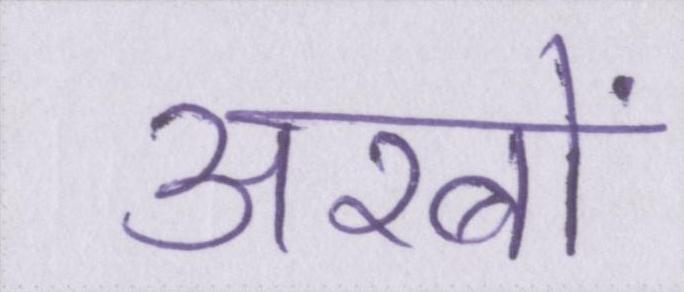 अरबों